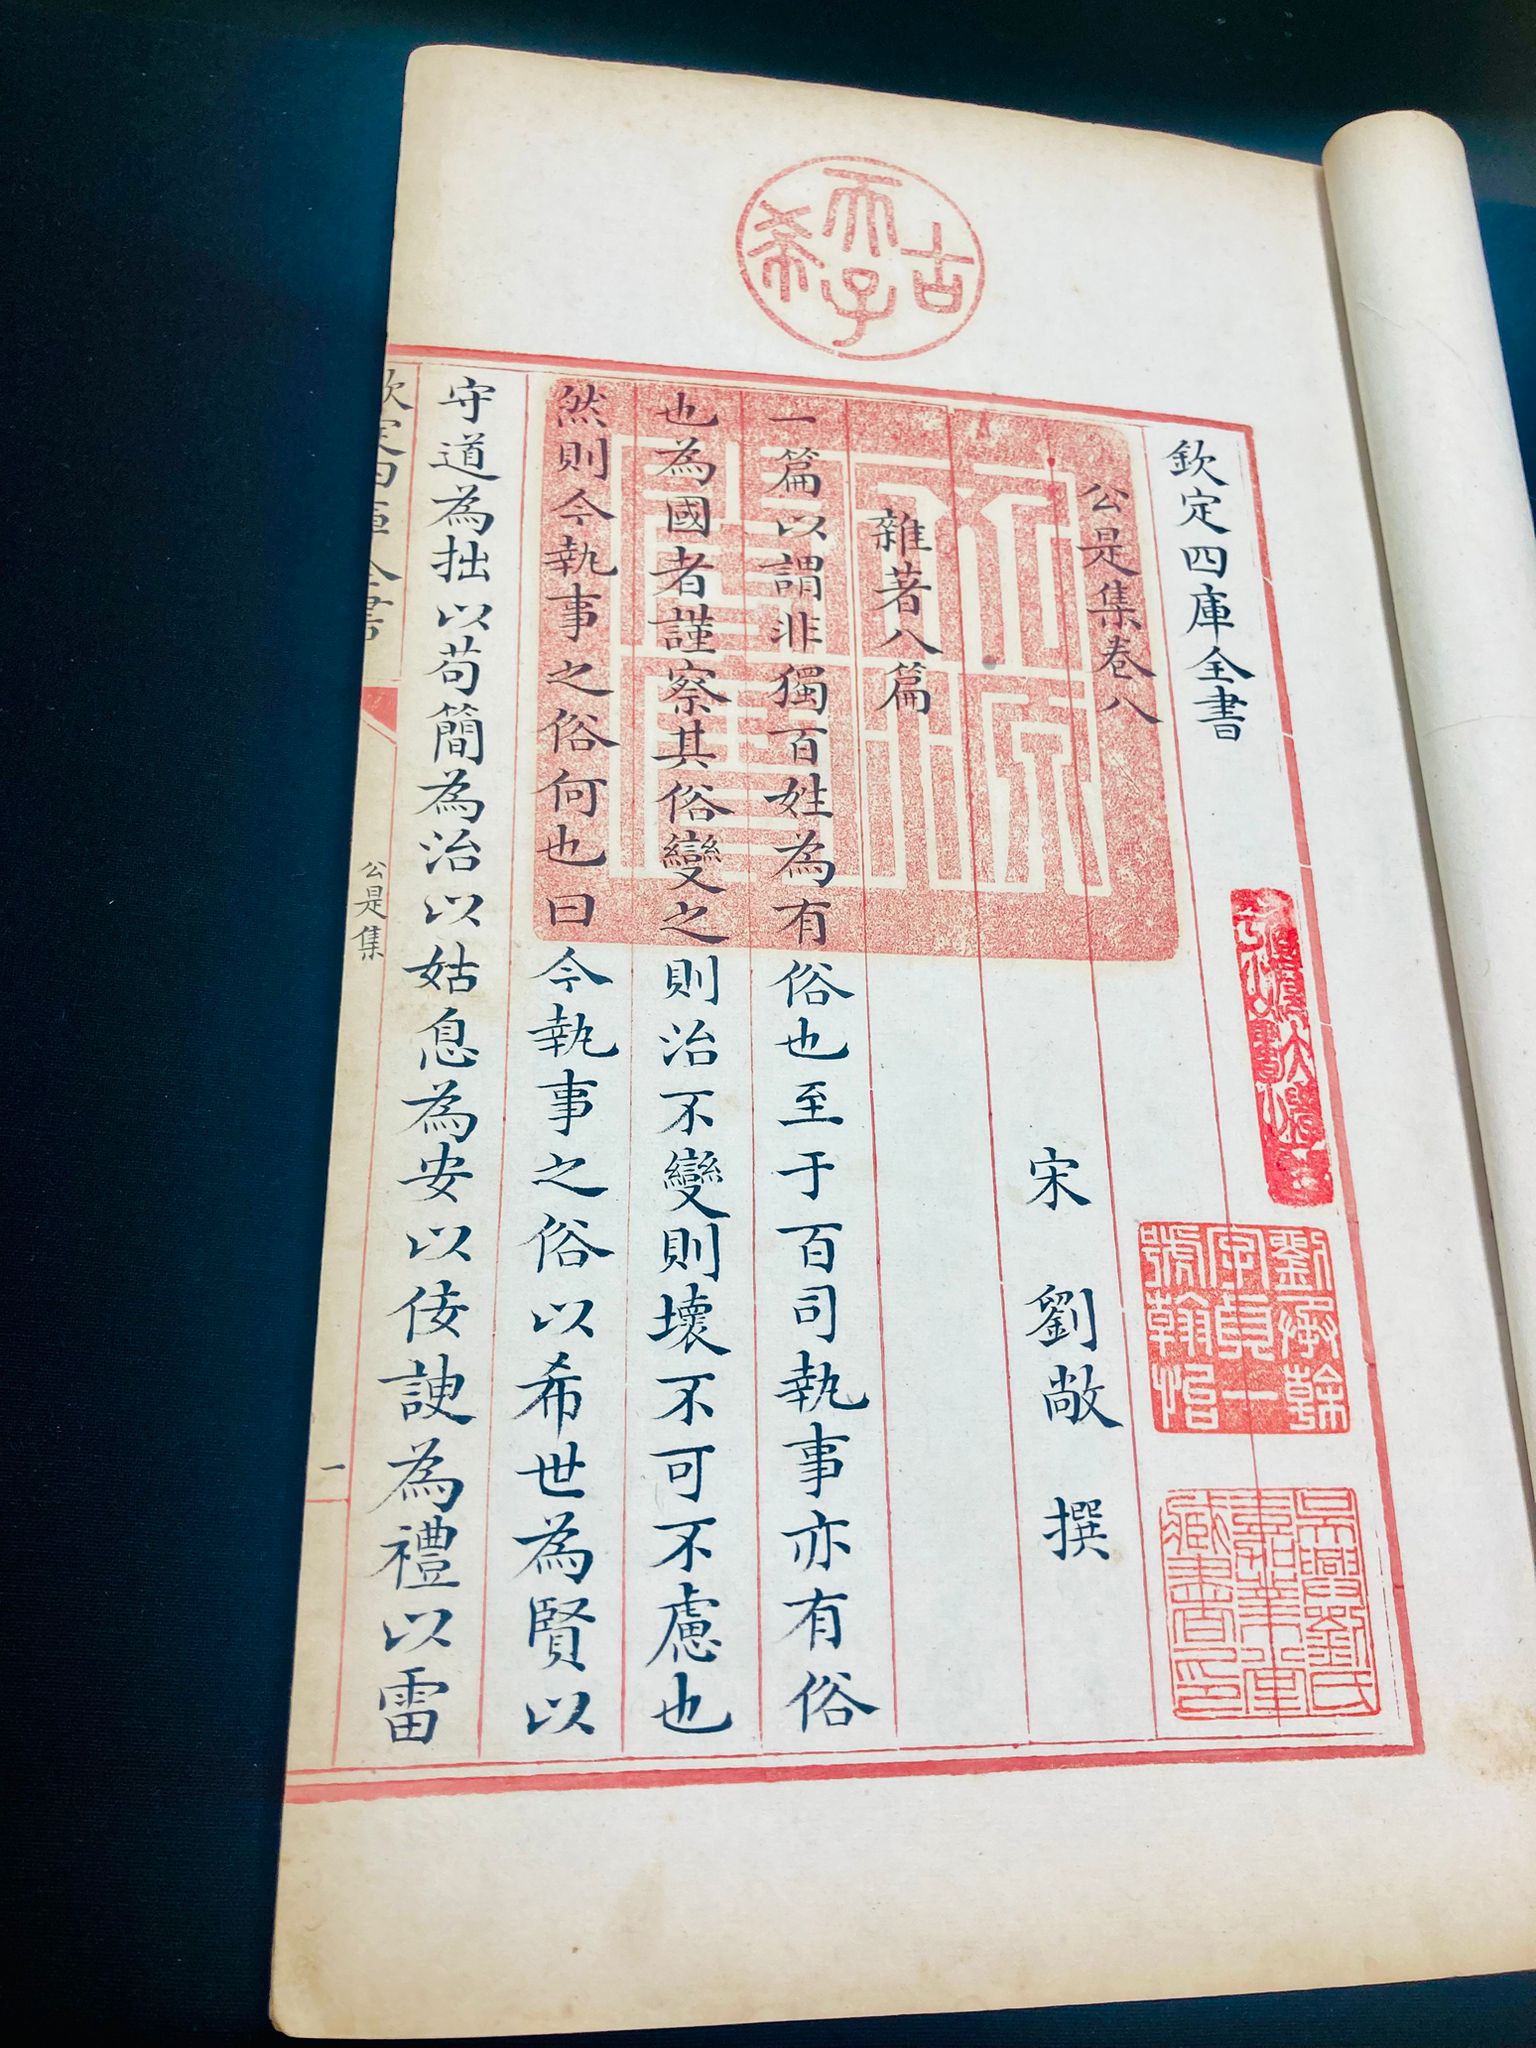 欽定四庫全書
公是集卷八
宋　劉敞　撰
雜著八篇
一篇以謂非獨百姓為有俗也至于百司執事亦有俗
也為國者謹察其俗變之則治不變則壞不可不慮也
然則今執事之俗何也曰今執事之俗以希世為賢以
守道為拙以苟簡為治以姑息為安以倿諛為禮以雷
欽定四庫全書
公是集
一
古希天子
劉承幹字貞一號翰怡
吳興劉氏嘉業堂藏書印